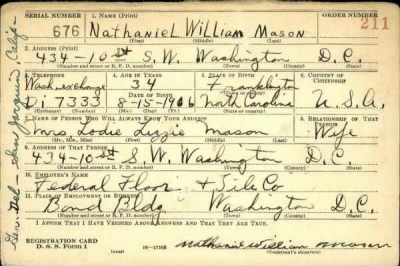 SERIAL NUMBER 1. NAME (Print) ORDER NUMBER
676 Nathaniel William Mason 211
(First) (Middle) (Last)
2. ADDRESS (Print)
434-10 St S.W. Washington D.C.
(Number and street or R. F. D. number) (Town) (County) (State)
3. TELEPHONE 4. AGE IN YEARS 5. PLACE OF BIRTH 6. COUNTRY OF CITIZENSHIP
Wash. exchange 34 Franklington
DATE OF BIRTH
DI. 7333 8-15-1906 North Carolina U.S.A.
7. NAME OF PERSON WHO WILL ALWAYS KNOW YOUR ADDRESS 8. RELATIONSHIP OF THAT PERSON
Mrs. Lodie Lizzie Mason Wife
(Mr., Mrs., Miss) (First) (Middle) (Last)
9. ADDRESS OF THAT PERSON
434-10 St S.W. Washington D.C.
(Number and street or R. F. D. number) (Town) (County) (State)
10. EMPLOYER'S NAME
Federal Floor & Tile Co
11. PLACE OF EMPLOYMENT OR BUSINESS
Bond Bldg Washington D.C.
(Number and street or R. F. D. number) (Town) (County) (State)
I AFFIRM THAT I HAVE VERIFIED ABOVE ANSWERS AND THAT THEY ARE TRUE.
REGISTRATION CARD
D. S. S. Form 1 Nathaniel William Mason
(Registrant's signature)
Gen. Del. Calif